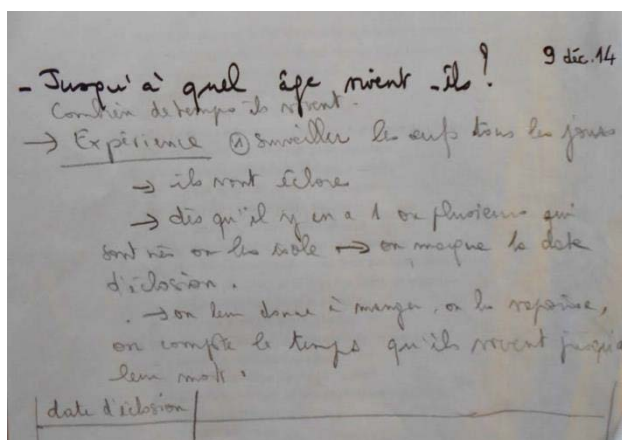 9 déc. 14
- Jusqu'à quel âge vivent-ils?
Combien de temps ils vivent.
→ Expérience ① surveiller les œufs tous les jours
→ ils vont éclore
→ dès qu'il y en a 1 ou plusieurs qui
sont nés on les isole → on marque la date
d'éclosion.
→ on leur donne à manger, on les
on compte le temps qu'ils vivent jusqu'à
leur mort.
date d'éclosion